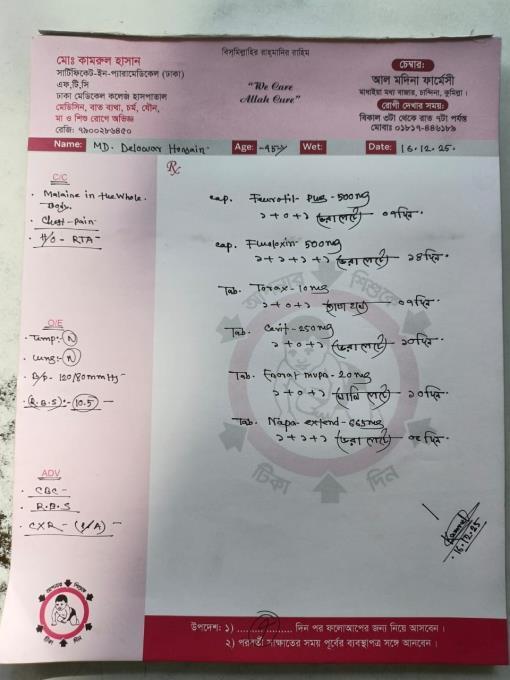 বিসমিল্লাহির রাহমানির রাহিম
মোঃ কামরুল হাসান
সার্টিফিকেট-ইন-প্যারামেডিকেল (ঢাকা)
এফ,টি,সি
ঢাকা মেডিকেল কলেজ হাসপাতাল
মেডিসিন, বাত ব্যথা, চর্ম, যৌন,
মা ও শিশু রোগে অভিজ্ঞ
রেজি: ৭৯০০২৮৬৪৫০
"We Care
Allah Cure"
চেম্বার:
আল মদিনা ফার্মেসী
মাধাইয়া মধ্য বাজার, চান্দিনা, কুমিল্লা।
রোগী দেখার সময়:
বিকাল ৩টা থেকে রাত ৭টা পর্যন্ত
মোবাঃ ০১৮১৭-৪৪৬১৮৯
Name: MD. Delowar Hossain Age: -45y Wet: Date: 16.12.25.
C/C
Malaine in the whole
Body.
Chest-pain
H/O - RTA
O/E
Temp:- N
Lung:- N
B/P- 120/80mmHg-
(R.B.S):- (10.5)
ADV
CBC-
R.B.S
CXR-
Rx
cap. 500mg
১+০+১ (ভরা পেটে)— ০৭দিন.
cap. Flucloxin- 500mg
১+১+১+১ (ভরা পেটে)— ১৪দিন.
Tab. Torax-10mg
১+০+১ ০৭দিন.
Tab. Cevit-250mg
১+০+১ (ভরা পেটে)— ১০দিন.
Tab. mups-20mg
১+০+১ (খালি পেটে)— ১০দিন.
Tab. Napa extend-665mg
১+১+১ (ভরা পেটে)—
আপনার শিশুকে
টিকা দিন
16.12.25
আপনার শিশুকে
টিকা দিন
উপদেশ: ১) .................. দিন পর ফলোআপের জন্য নিয়ে আসবেন।
২) পরবর্তী সাক্ষাতের সময় পূর্বের ব্যবস্থাপত্র সঙ্গে আনবেন।